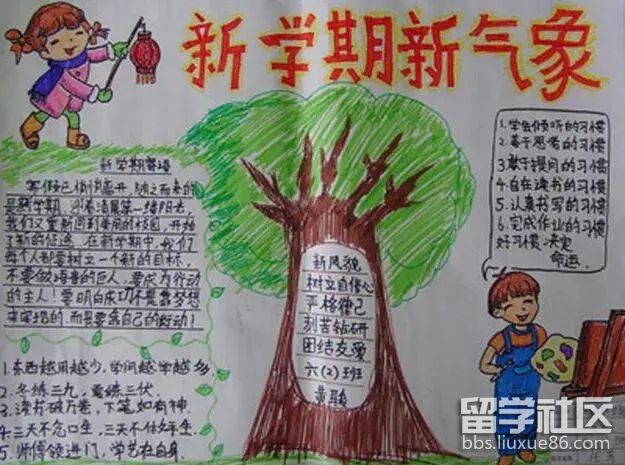 新学期新气象
新学期寄语
寒假已悄悄离开，随之而来的
是新学期，迎着清晨第一缕阳光，
我们又重新回到美丽的校园，开始
了新的征途。在新学期中，我们
每个人都要树立一个新的目标，
不要做语言的巨人，要成为行动
的主人！要明白成功不是靠梦想
来实现的，而是要靠自己的行动！
1.东西越用越少，学问越学越多
2.冬练三九，夏练三伏
3.读书破万卷，下笔如有神.
4.三天不念口生，三天不做手生.
5.师傅领进门，学艺在自身.
新风貌
树立自信心
严格律己
刻苦钻研
团结友爱
六(2)班
1.学会倾听的习惯
2.善于思考的习惯
3.敢于提问的习惯
4.自在读书的习惯
5.认真书写的习惯
6.完成作业的习惯
好习惯·决定
命运.
留学社区
bbs.liuxue86.com